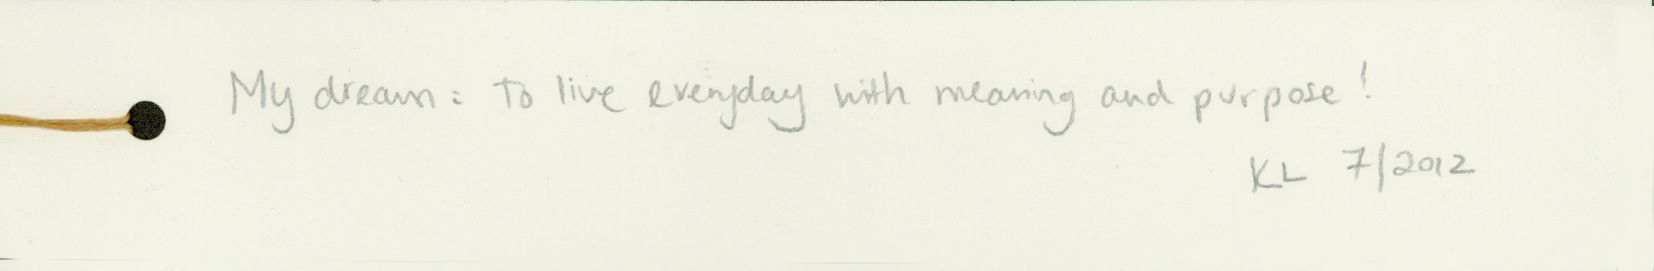 My dream: To live everyday with meaning and purpose!
KL 7/2012